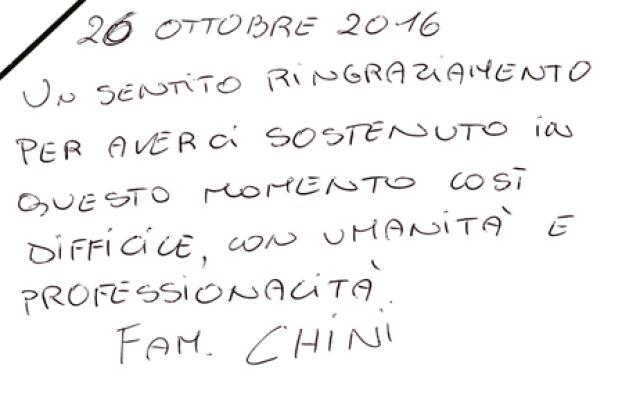 26 OTTOBRE 2016
UN SENTITO RINGRAZIAMENTO
PER AVERCI SOSTENUTO IN
QUESTO MOMENTO COSÌ
DIFFICILE, CON UMANITÀ E
PROFESSIONALITÀ.
FAM. CHINI